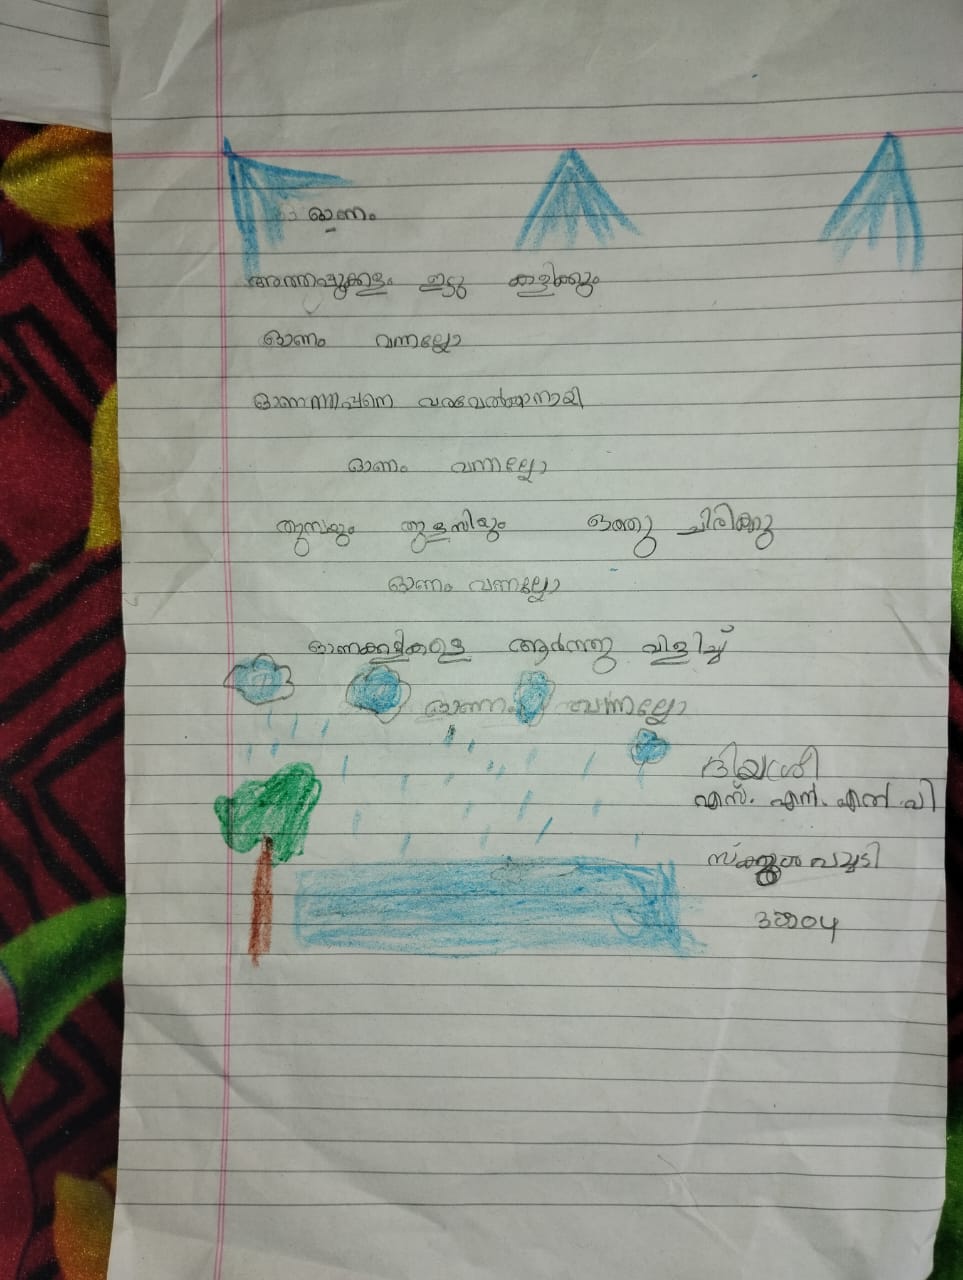 ഓണം
അത്തപ്പൂക്കളം ഇട്ടു കളിക്കും
ഓണം വന്നല്ലോ
ഓണത്തപ്പനെ വരവേൽക്കാനായി
ഓണം വന്നല്ലോ
തുമ്പയും തുളസിയും ഒത്തു ചിരിക്കു
ഓണം വന്നല്ലോ
ഓണക്കളികളെ ആർത്തു വിളിച്ച്
ഓണം വന്നല്ലോ
ദിയശ്രീ
എസ്. എൻ. എൽ പി
സ്കൂൾ